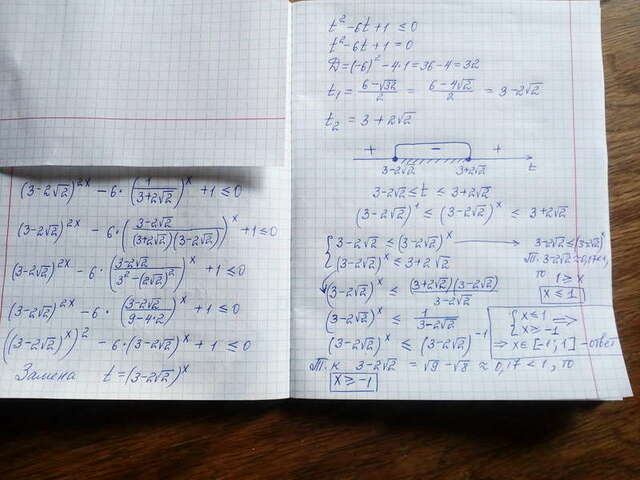 (3-2√2)^2x - 6·(1/(3+2√2))^x + 1 ≤ 0
(3-2√2)^2x - 6·((3-2√2)/((3+2√2)(3-2√2)))^x + 1 ≤ 0
(3-2√2)^2x - 6·((3-2√2)/(3²-(2√2)²))^x + 1 ≤ 0
(3-2√2)^2x - 6·((3-2√2)/(9-4·2))^x + 1 ≤ 0
((3-2√2)^x)² - 6·(3-2√2)^x + 1 ≤ 0
Замена t = (3-2√2)^x
t² - 6t + 1 ≤ 0
t² - 6t + 1 = 0
D = (-6)² - 4·1 = 36 - 4 = 32
t₁ = (6-√32)/2 = (6-4√2)/2 = 3-2√2
t₂ = 3+2√2
+ - +
3-2√2 3+2√2 t
3-2√2 ≤ t ≤ 3+2√2
(3-2√2)^1 ≤ (3-2√2)^x ≤ 3+2√2
{ 3-2√2 ≤ (3-2√2)^x → 3-2√2 ≤ (3-2√2)^x
(3-2√2)^x ≤ 3+2√2
Т. 3-2√2 ≈ 0,17 < 1,
то 1 ≥ x
x ≤ 1
(3-2√2)^x ≤ ((3+2√2)(3-2√2))/(3-2√2)
(3-2√2)^x ≤ 1/(3-2√2)
(3-2√2)^x ≤ (3-2√2)^-1
{ x ≤ 1
x ≥ -1 ⇒
⇒ x ∈ [-1; 1] - ответ
Т.к 3-2√2 = √9 - √8 ≈ 0,17 < 1, то
x ≥ -1